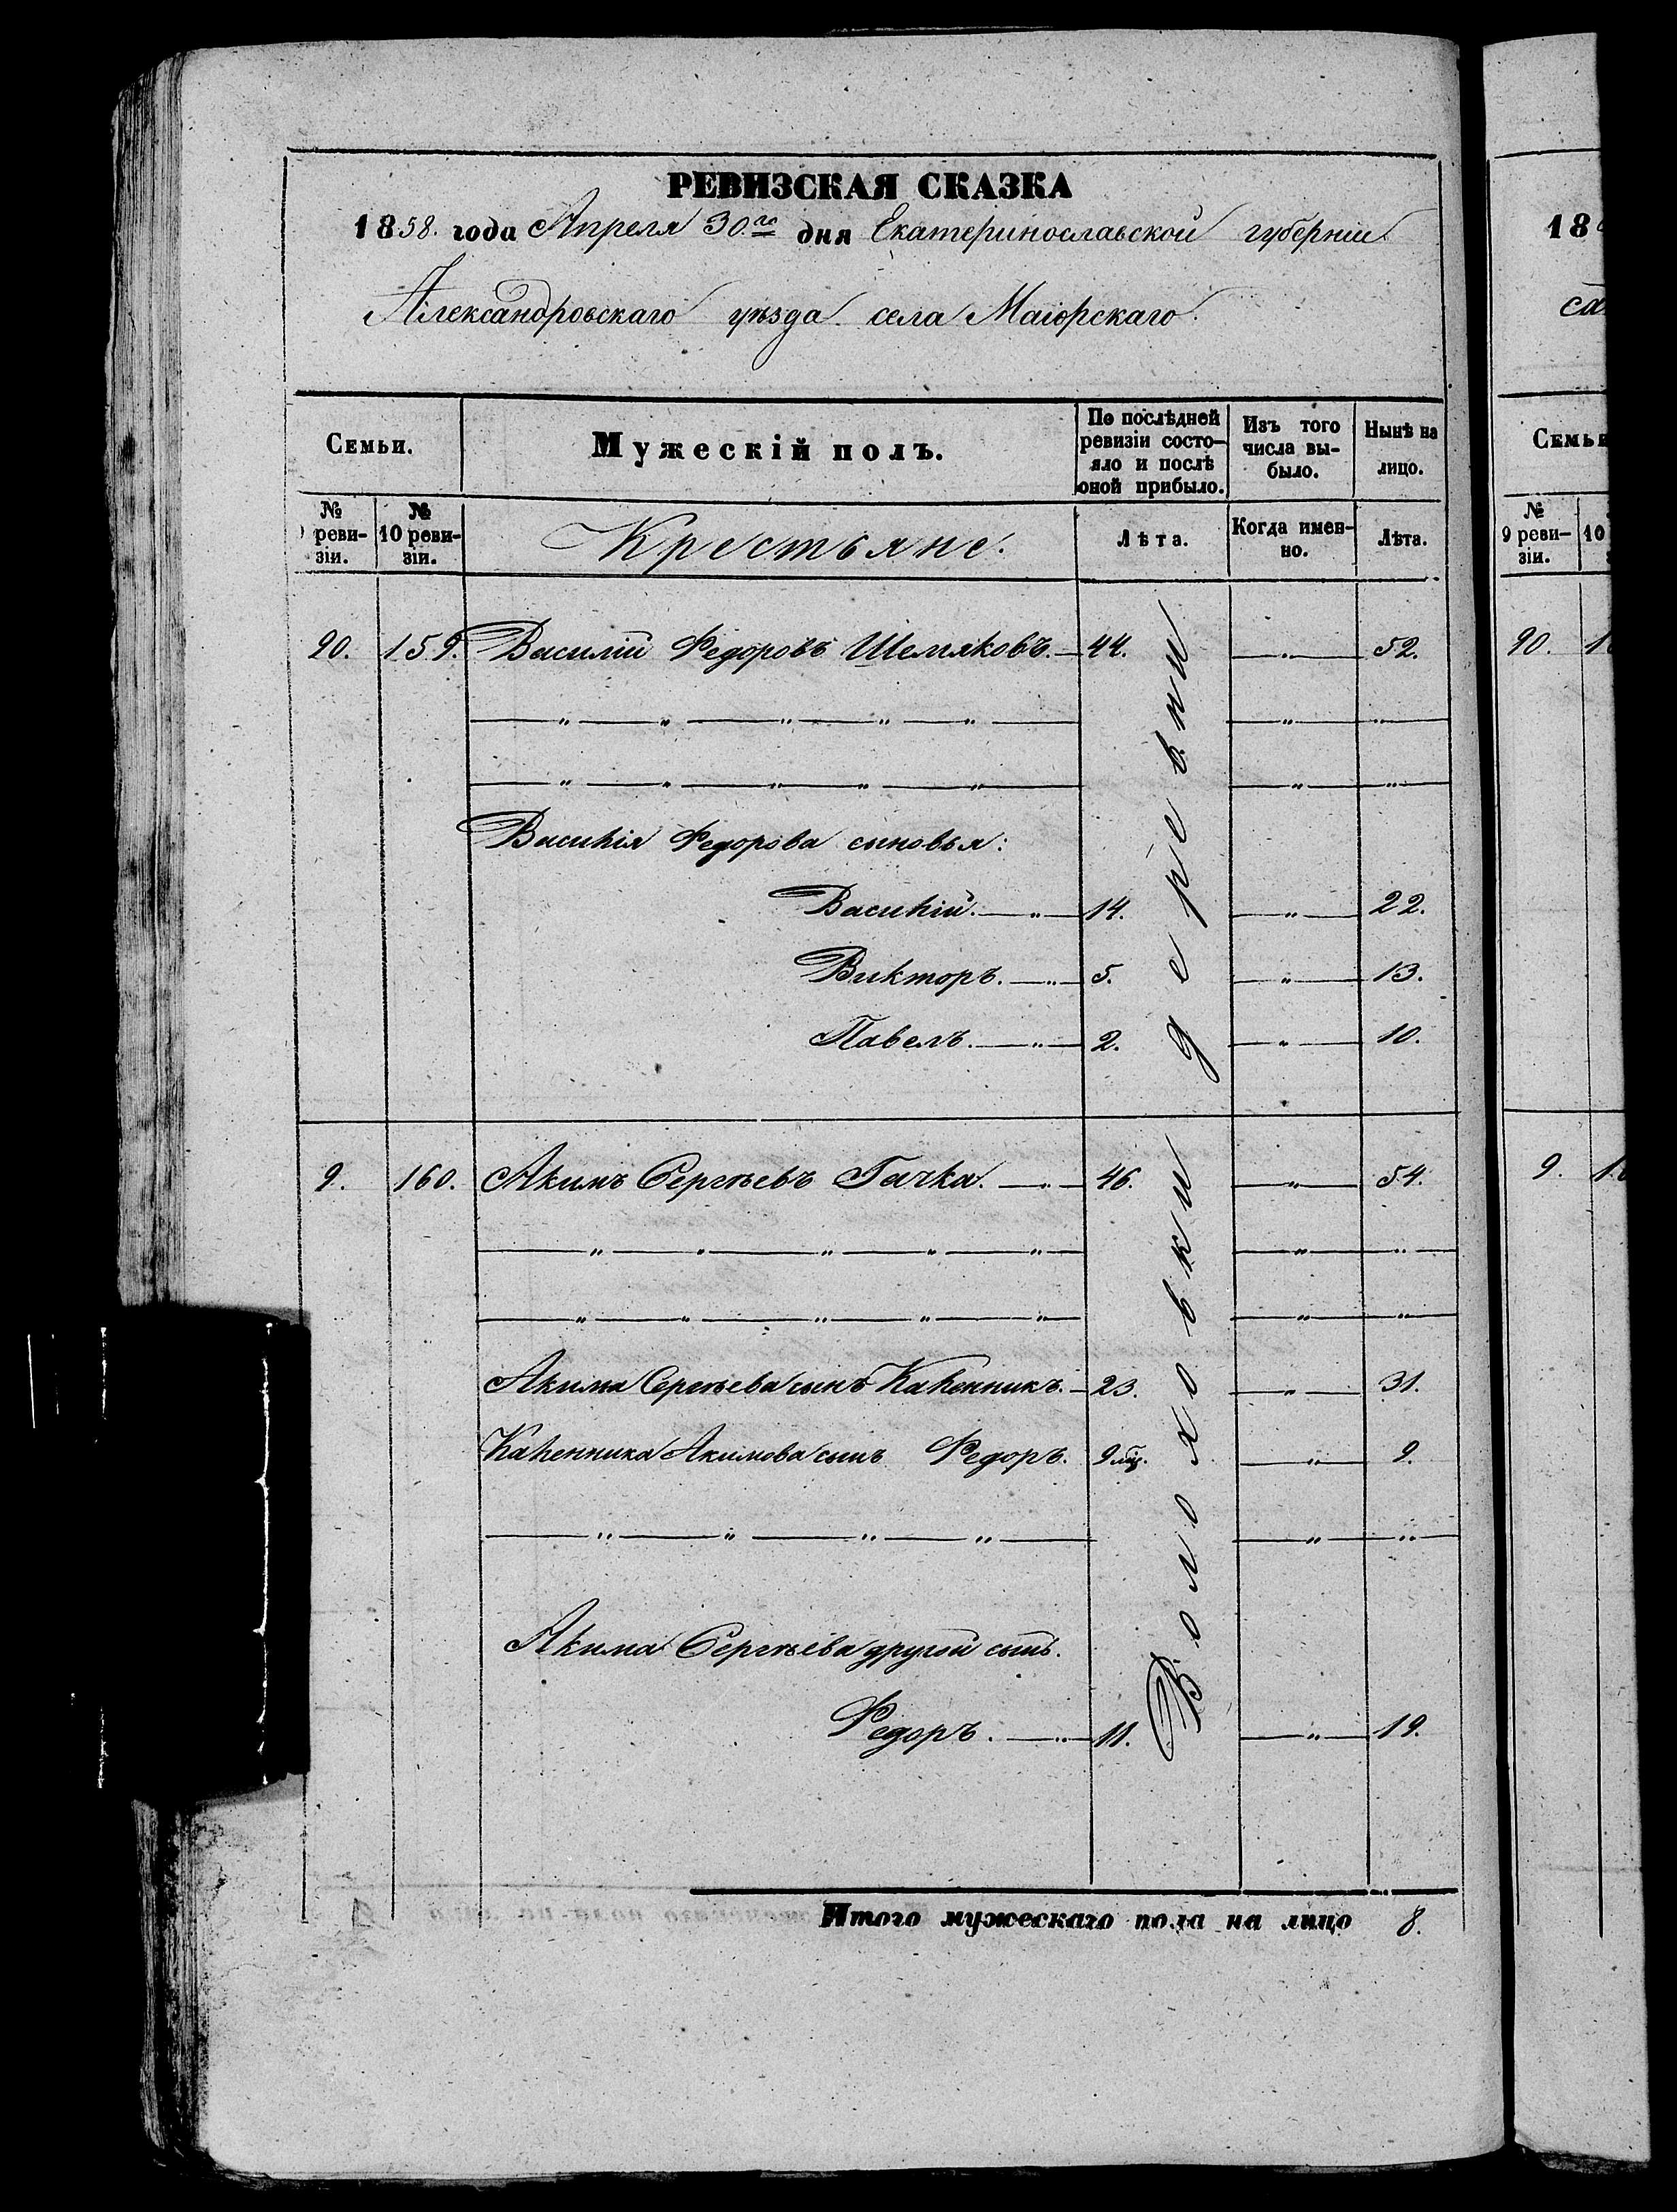 РЕВИЗСКАЯ СКАЗКА
1858. года Апреля 30.го дня Екатеринославской губерніи
Александровскаго уѣзда села Маіорскаго.
Семьи.
Мужескій полъ.
По послѣдней ревизіи состояло и послѣ оной прибыло.
Изъ того числа вы-было.
Нынѣ на лицо.
№ реви-зіи.
№ 10 реви-зіи.
Крестьяне.
Лѣта.
Когда имен-но.
Лѣта.
20. 159. Василій Федоровъ Шемяковъ. 44. 52.
Василія Федорова сыновья:
Василій. 14. 22.
Викторъ. 5. 13.
Павелъ. 2. 10.
9. 160. Акимъ Сергѣевъ Гачка. 46. 54.
Акима Сергѣева сынъ Каленникъ. 23. 31.
Каленника Акимова сынъ Федоръ. 9 мѣс. 9.
Акима Сергѣева другой сынъ.
Федоръ. 11. 19.
Волоховки деревни
Итого мужескаго пола на лицо 8.
18
са
Семьи
№ 9 реви-зіи.
10
20. 1
9. 1